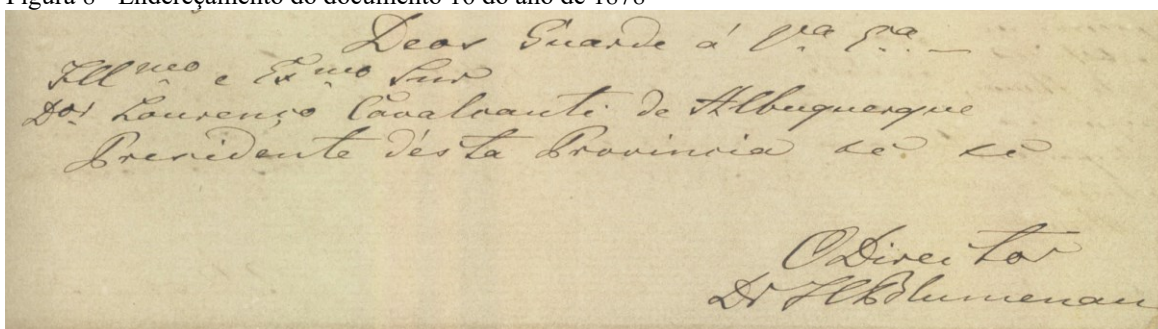 Figura 8 - Endereçamento do documento 16 do ano de 1878
Deos Guarde á Vª Exª
Illmo e Exmo Snr
Dor Lourenço Cavalcanti de Albuquerque
Presidente désta Provincia
O Director
Dr H B Blumenau